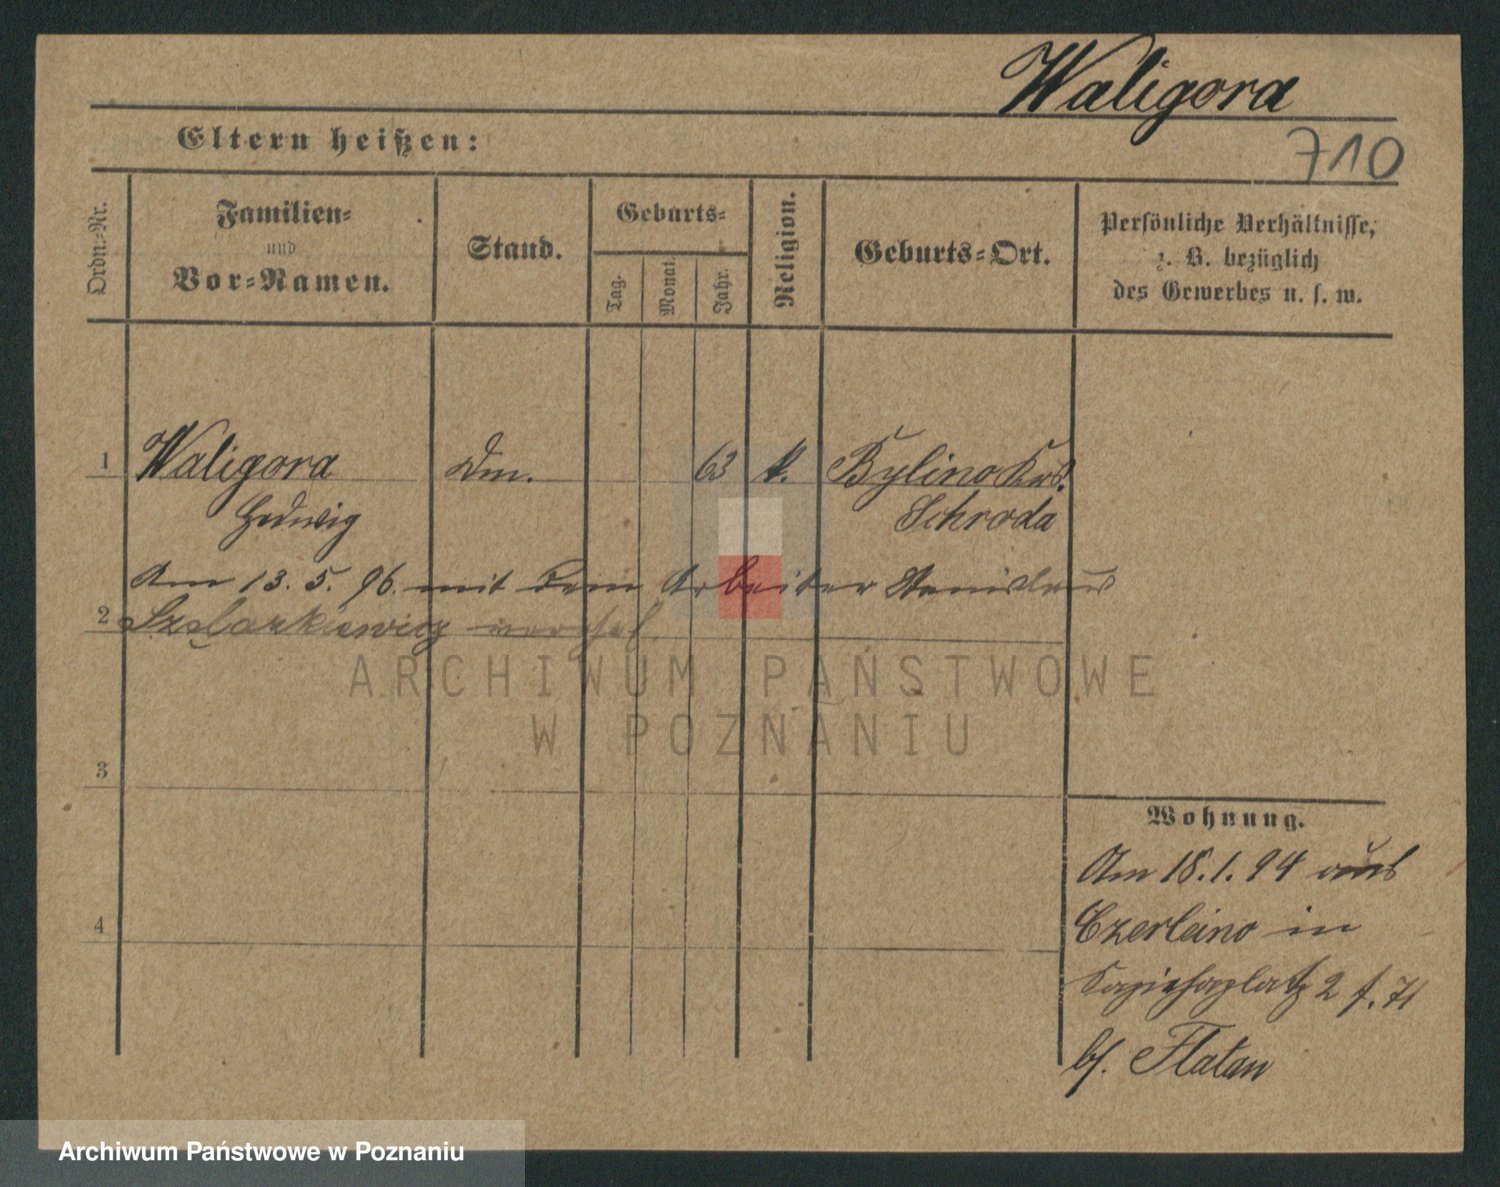 Waligora
710
Eltern heißen:
Ordn.-Nr.
Familien-
und
Vor-Namen.
Stand.
Geburts-
Tag.
Monat.
Jahr.
Religion.
Geburts-Ort.
Persönliche Verhältnisse,
z. B. bezüglich
des Gewerbes u. s. w.
1 Waligora 63 k. Bylino Krs.
Hedwig Schroda
Am 13. 5. 96. mit dem Arbeiter Stanislaus
2
3
4
Wohnung.
Am 18.1.94 aus
Czerleino in
2 f. 71
bf. Flatau
ARCHIWUM PAŃSTWOWE
W POZNANIU
Archiwum Państwowe w Poznaniu